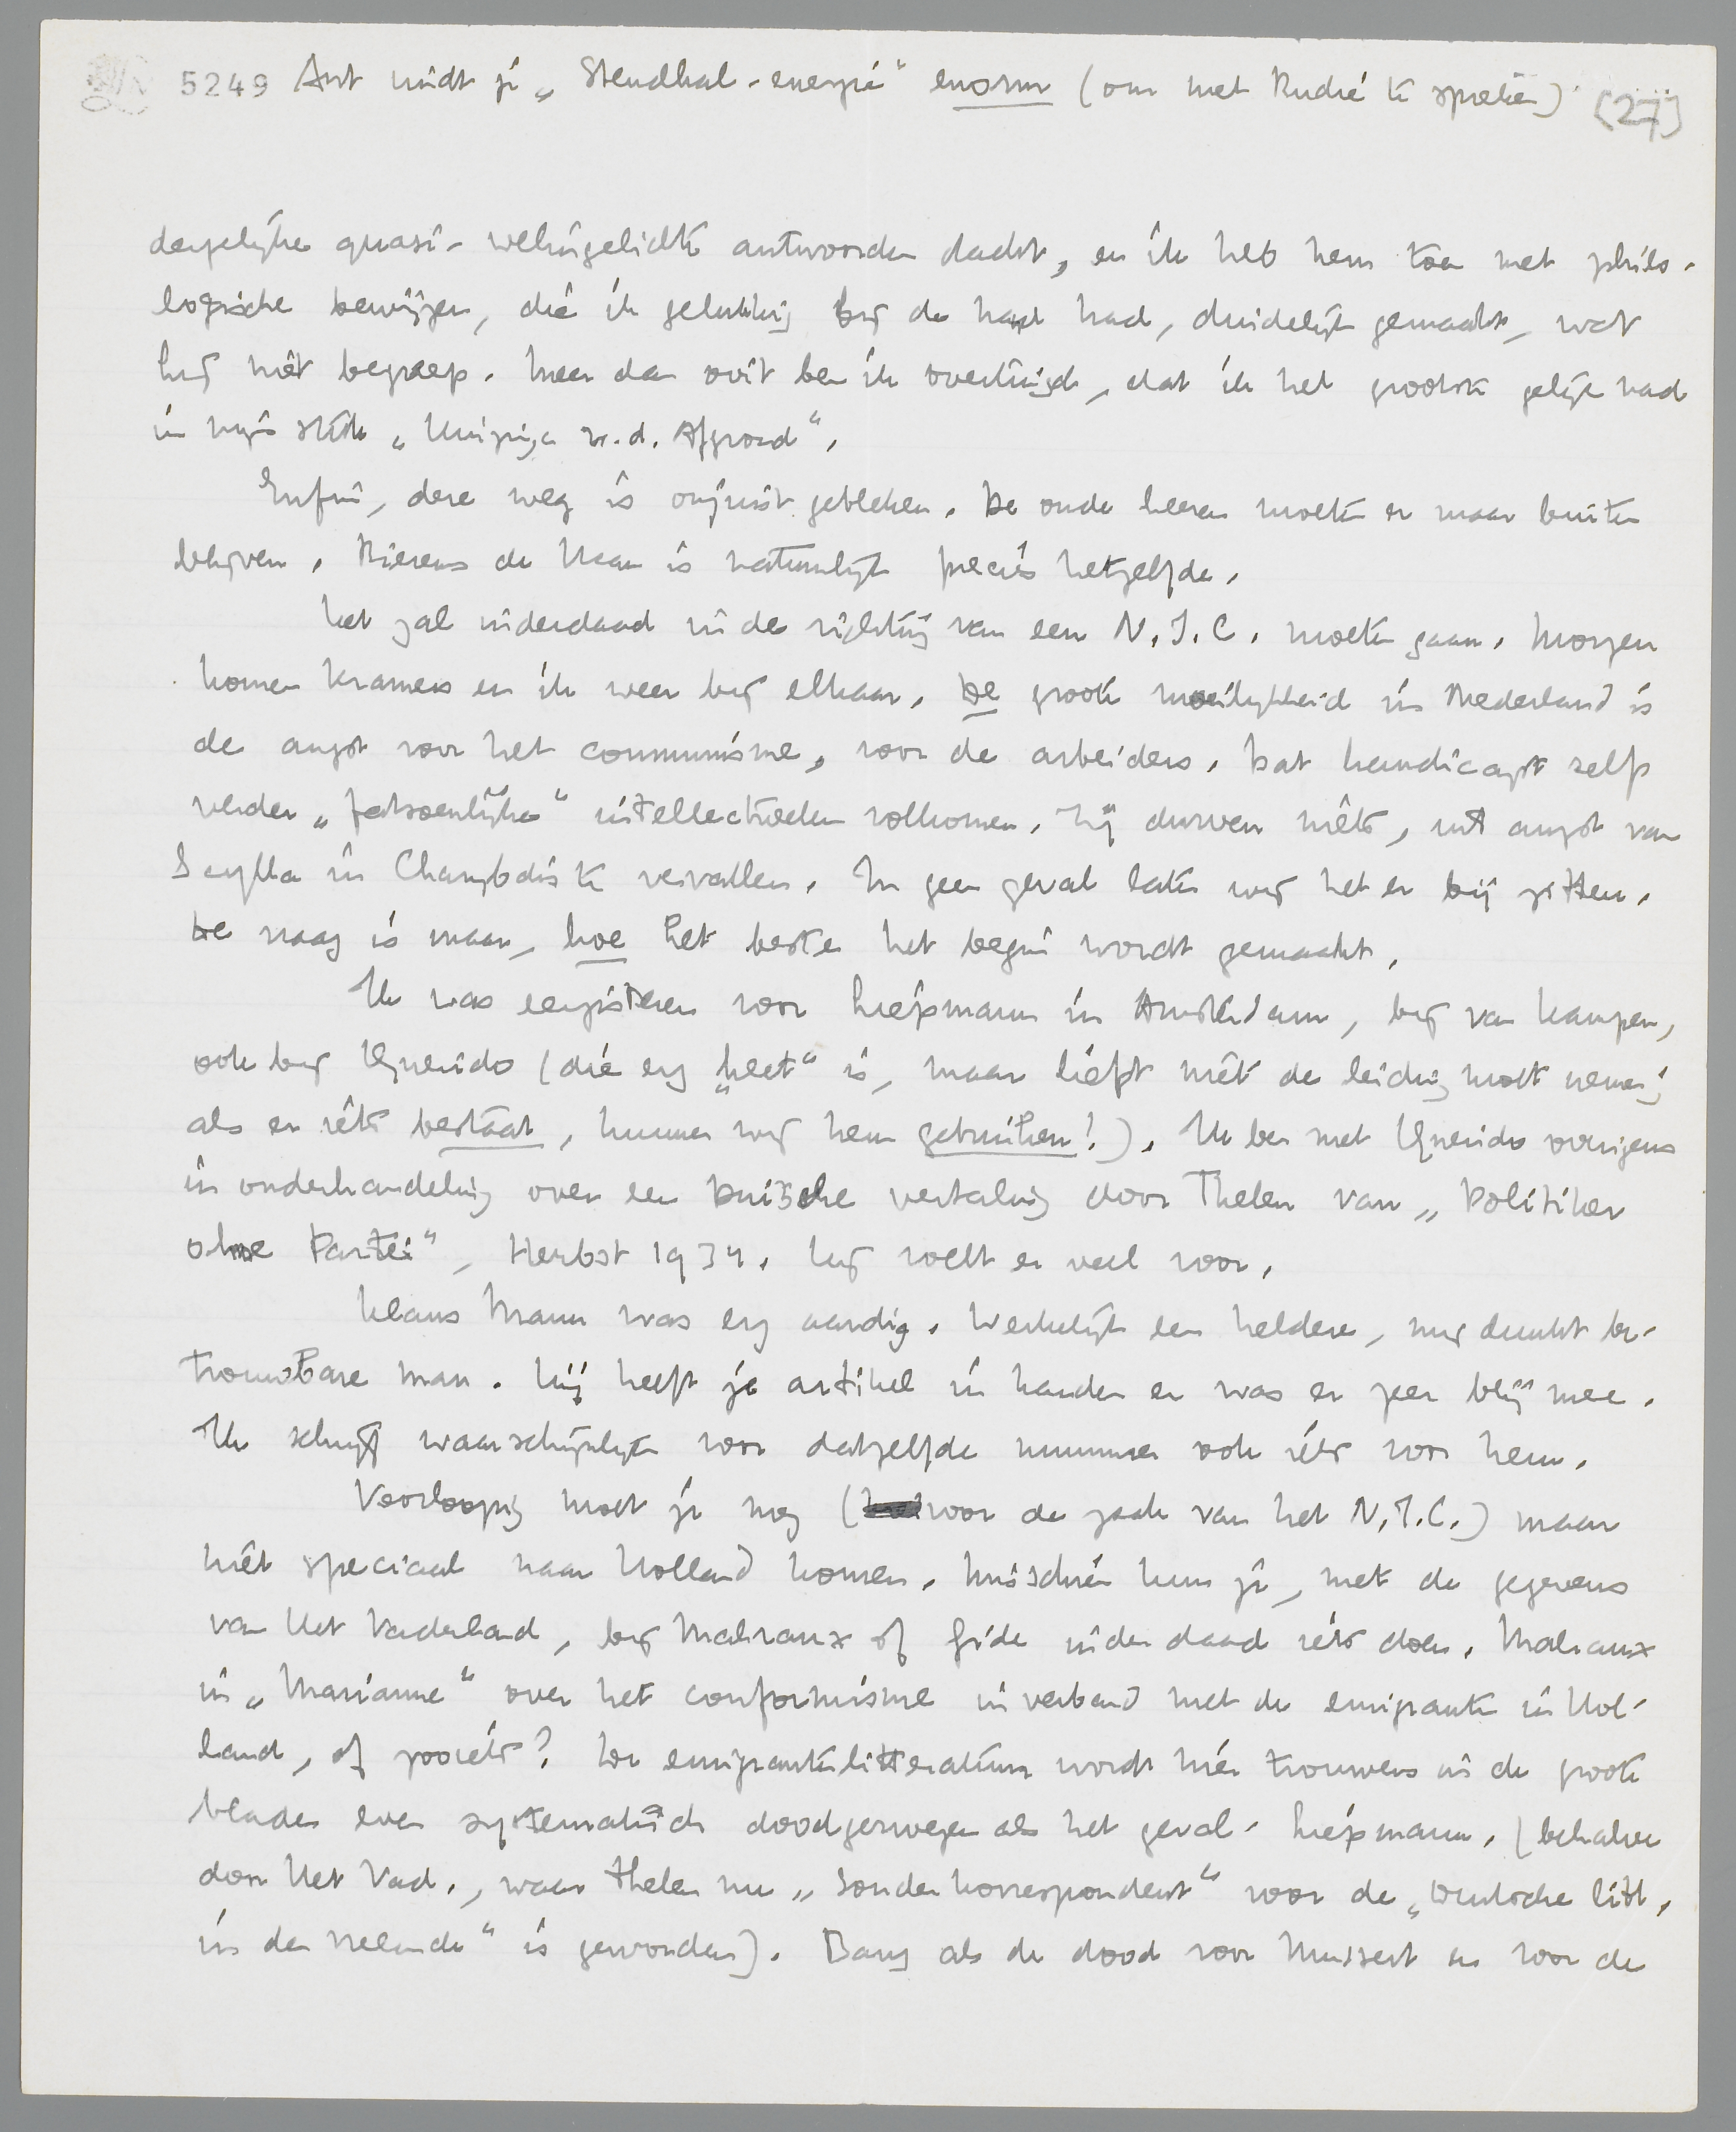 5249 Ant vindt je „Stendhal-energie" enorm (om met Rudie te spreken). (27)
dergelijke quasi-welingelichte antwoorden dacht, en ik heb hem toen met philo-
logische bewijzen, die ik gelukkig bij de hand had, duidelijk gemaakt, wat
hij niet begreep. Meer dan ooit ben ik overtuigd, dat ik het grootste gelijk had
in mijn stuk „Huizinga v.d. Afgrond".
Enfin, deze weg is onjuist gebleken. De oude heeren moeten er maar buiten
blijven. Bierens de Haan is natuurlijk precies hetzelfde.
Het zal inderdaad in de richting van een N.I.C. moeten gaan. Morgen
komen Kramers en ik weer bij elkaar. De groote moeilijkheid in Nederland is
de angst voor het communisme, voor de arbeiders. Dat handicapt zelfs
verder „fatsoenlijke" intellectueelen volkomen. Zij durven niets, uit angst van
Scylla in Charybdis te vervallen. In geen geval laten wij het er bij zitten.
De vraag is maar, hoe het beste het begin wordt gemaakt.
Ik was eergisteren voor Liepmann in Amsterdam, bij van Kampen,
ook bij Querido (die erg „heet" is, maar liefst niet de leiding moet nemen;
als er iets bestaat, kunnen wij hem gebruiken!). Ik ben met Querido overigens
in onderhandeling over een Duitsche vertaling door Thelen van „Politiker
ohne Partei", Herbst 1934. Hij voelt er veel voor.
Klaus Mann was erg aardig. Werkelijk een heldere, mij dunkt be-
trouwbare man. Hij heeft je artikel in handen en was er zeer blij mee.
Ik schrijf waarschijnlijk voor datzelfde nummer ook iets voor hem.
Voorloopig moet je nog (voor de zaak van het N.I.C.) maar
niet speciaal naar Holland komen. Misschien kun je, met de gegevens
van Het Vaderland, bij Malraux of Gide inderdaad iets doen. Malraux
in „Marianne" over het conformisme in verband met de emigranten in Hol-
land, of zooiets? De emigrantenlitteratuur wordt hier trouwens in de groote
bladen even systematisch doodgezwegen als het geval-Liepmann. (behalve
door Het Vad., waar Thelen nu „Sonderkorrespondent" voor de „Deutsche Litt.
in der Fremde" is geworden). Bang als de dood voor Mussert en voor de